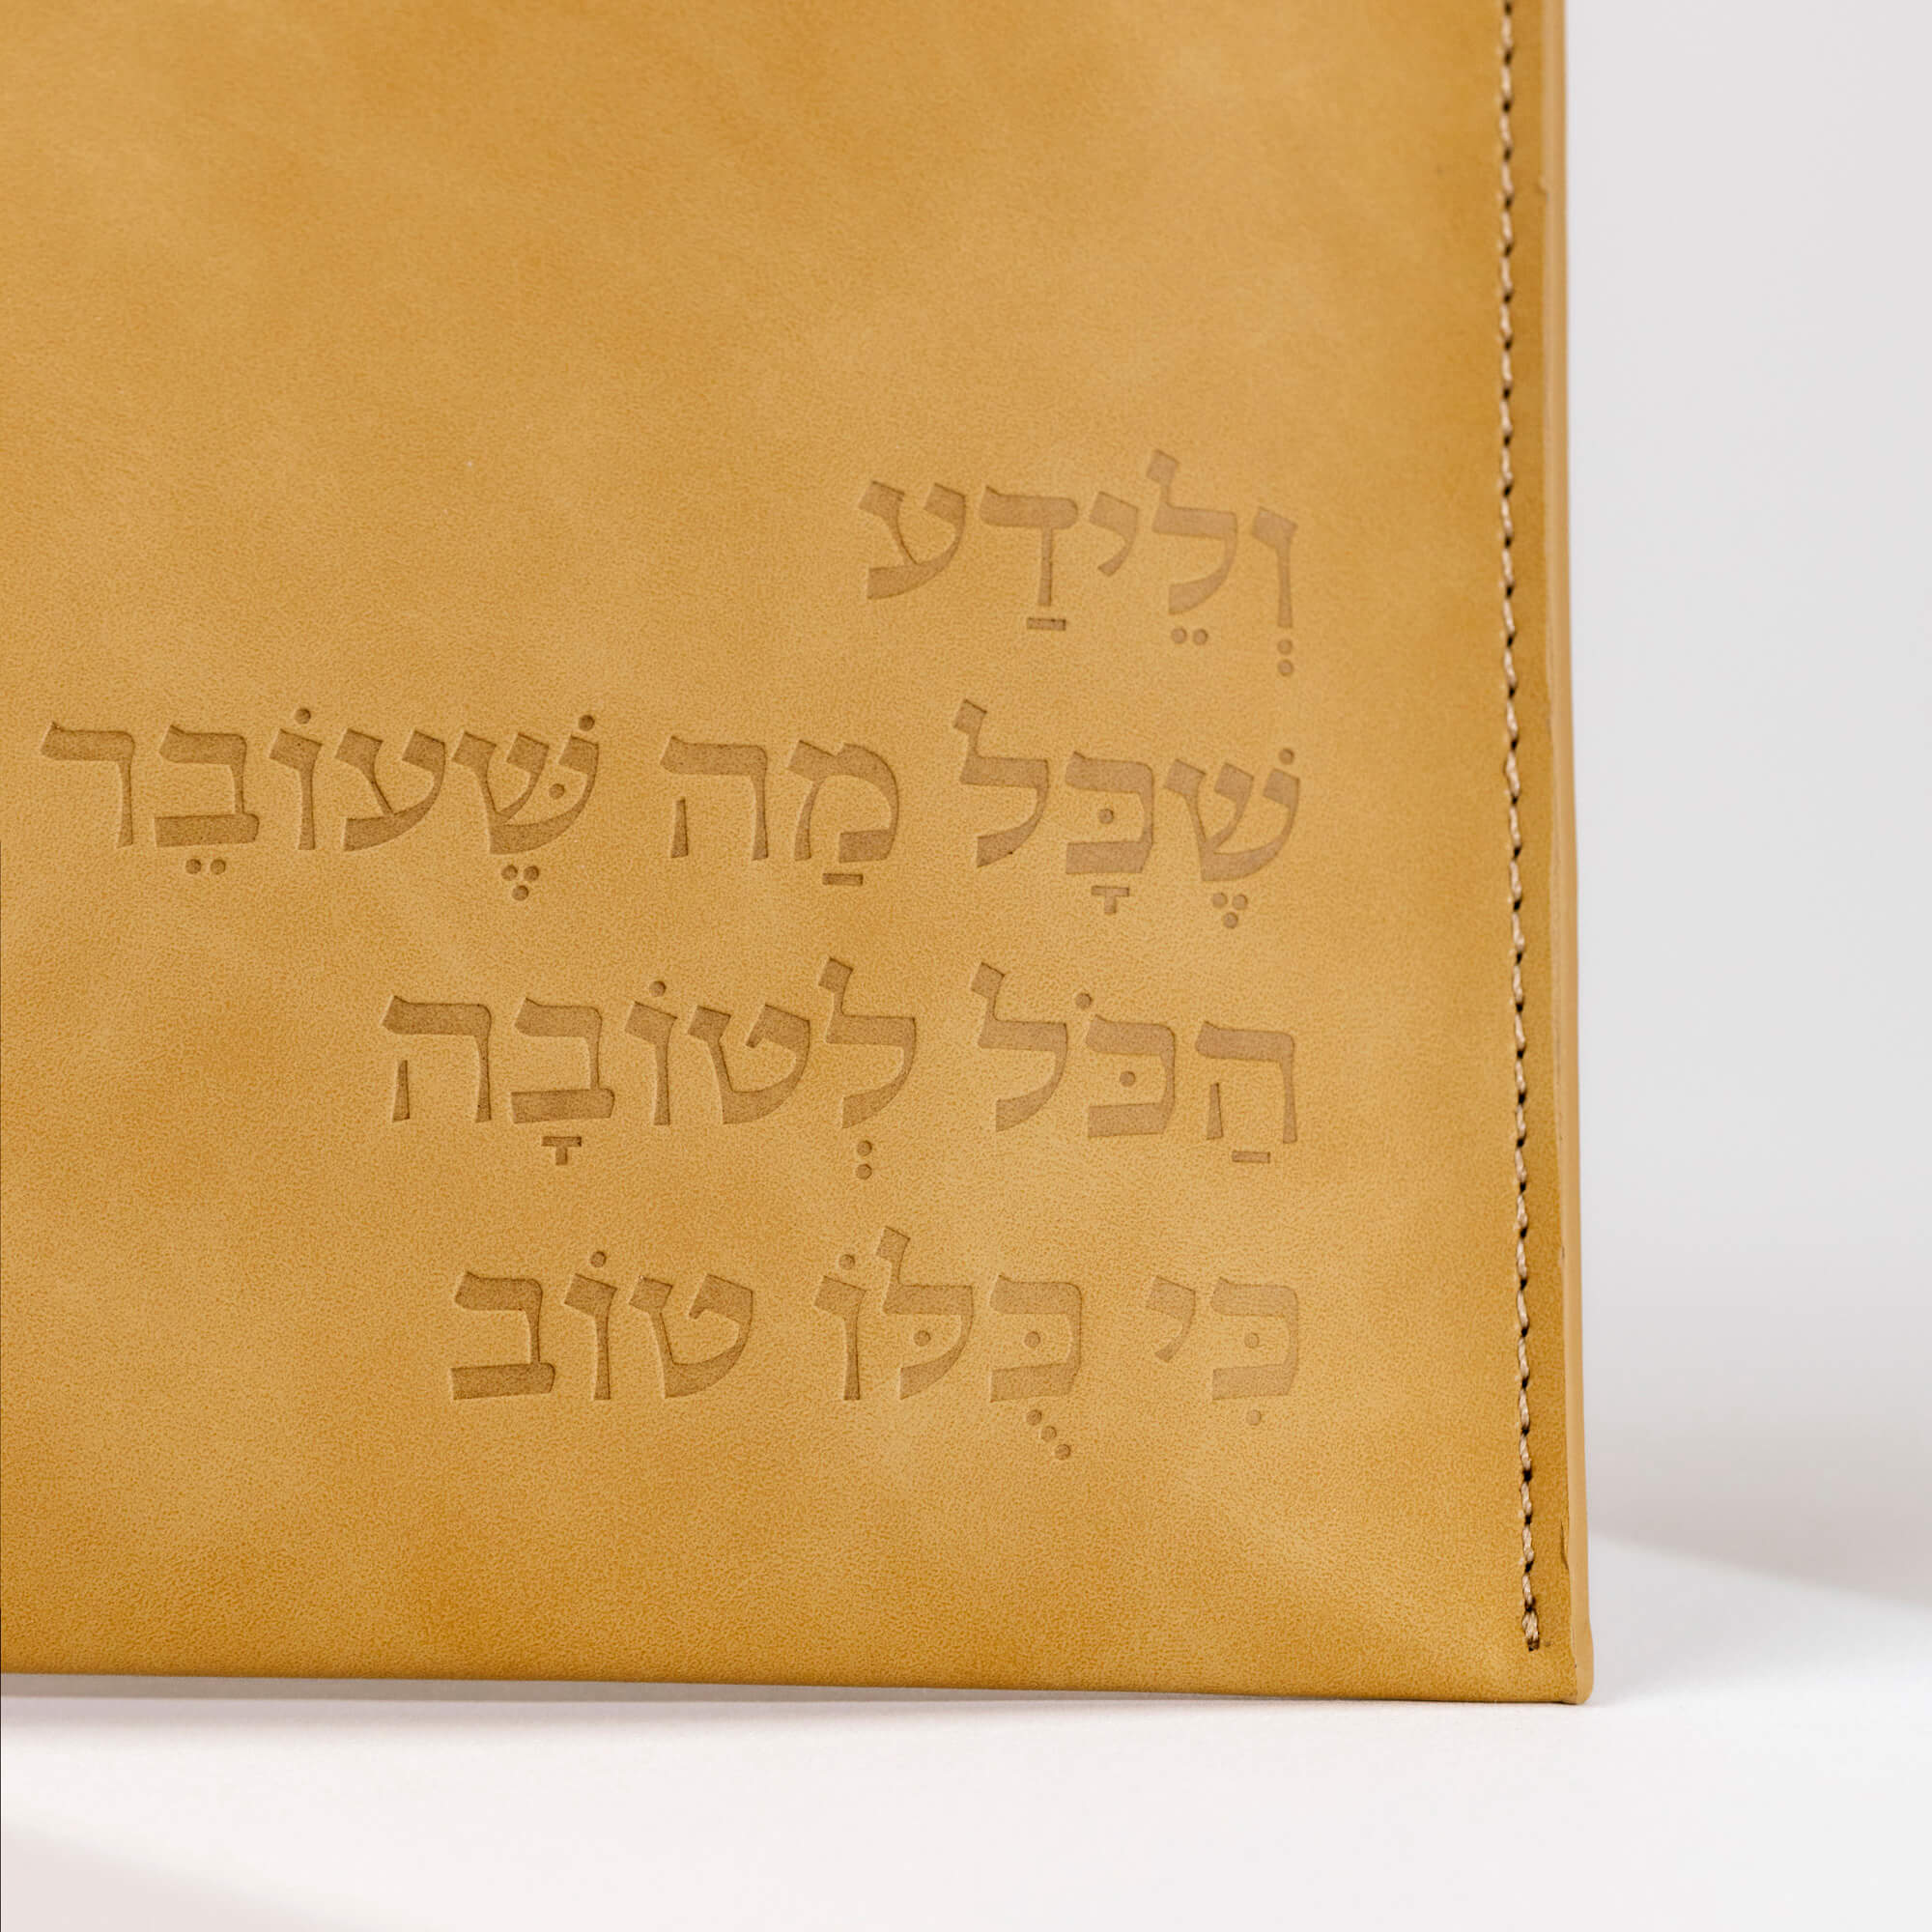 וְלֵידַע
שֶׁכָּל מַה שֶּׁעוֹבֵר
הַכֹּל לְטוֹבָה
כִּי כֻּלּוֹ טוֹב